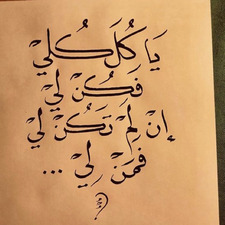 يَا كُلَّ كُلِّيْ
فَكُنْ لِيْ
إِنْ لَمْ تَكُنْ لِيْ
فَمَنْ لِيْ ...